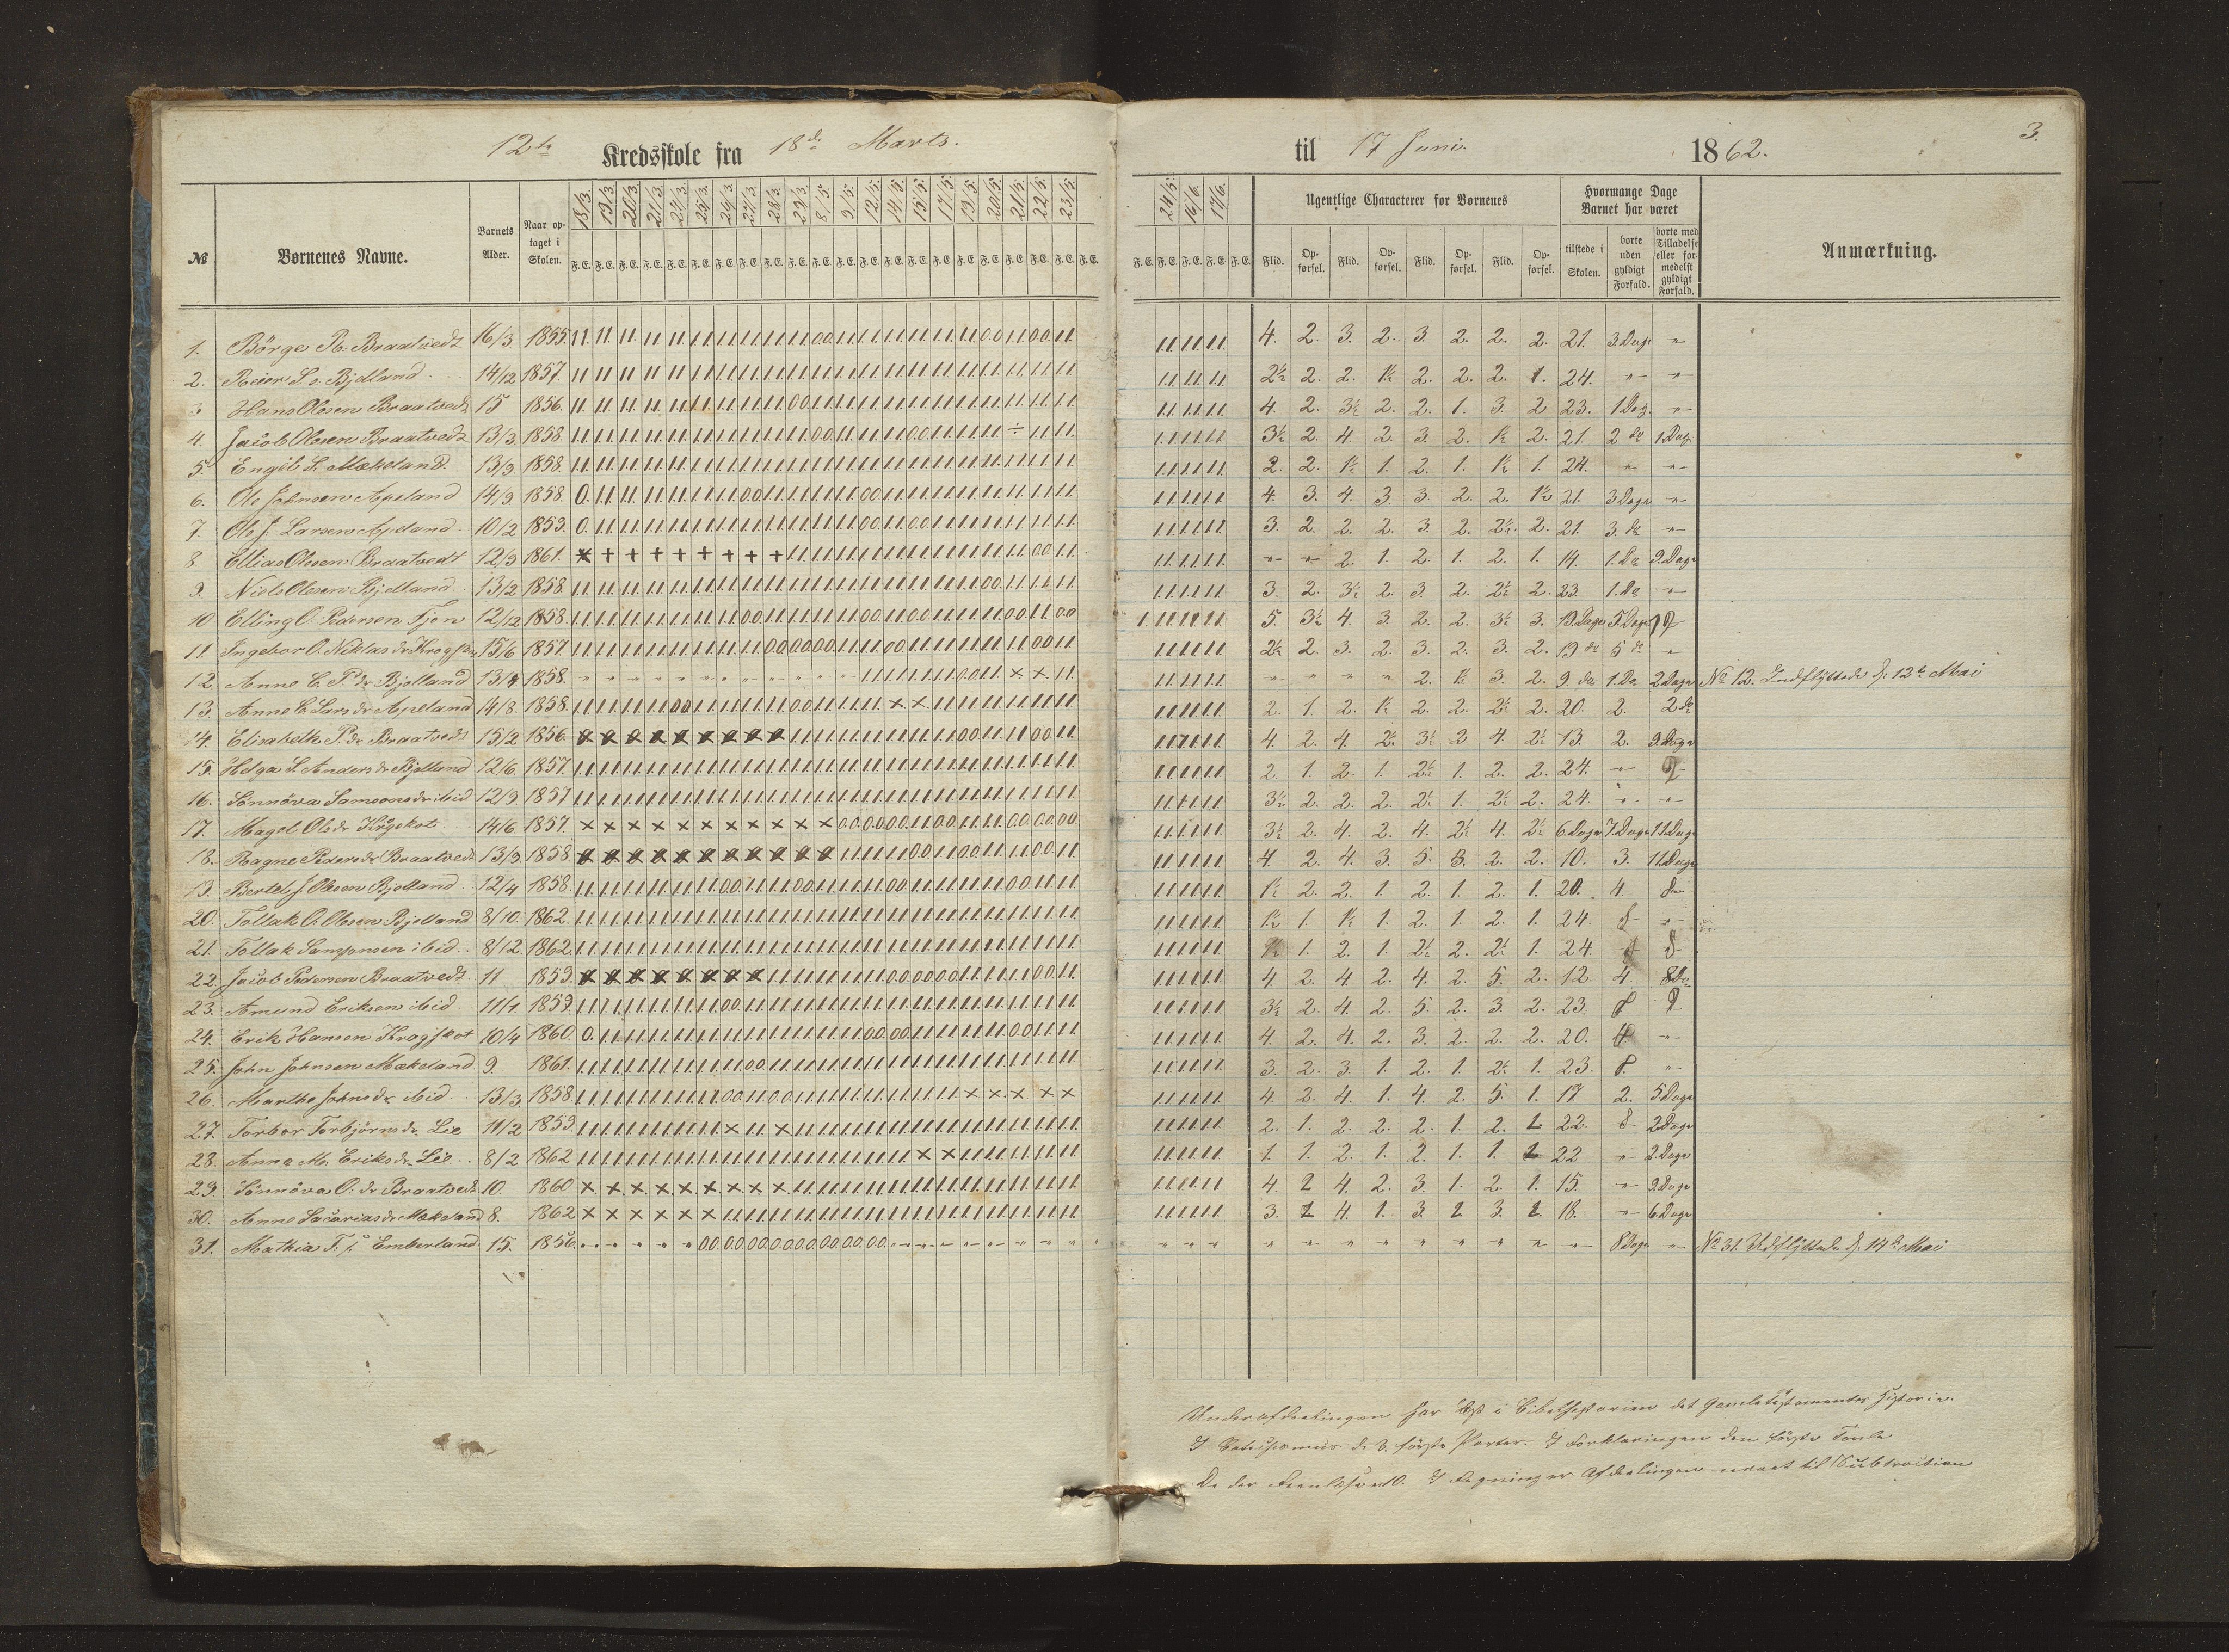 12te Kredsskole fra 18de Marts. til 17 Juni. 1862. 3.
№ Børnenes Navne. Barnets Alder. Naar optaget i Skolen. 18/3. 19/3 20/3. 21/3. 24/3. 25/3. 26/3 27/3. 28/3. 29/3. 8/5. 9/5. 12/5. 14/5. 15/5. 17/5. 19/5. 20/5. 21/5. 22/5. 23/5. 24/5. 16/6. 17/6.
F. E. F. E. F. E. F. E. F. E. F. E. F. E. F. E. F. E. F. E. F. E. F. E. F. E. F. E. F. E. F. E. F. E. F. E. F. E. F. E. F. E. F. E. F. E. F. E. F. E. F. E. F. E.
Ugentlige Characterer for Børnenes
Flid. Opførsel. Flid. Opførsel. Flid. Opførsel. Flid. Opførsel.
Hvormange Dage Barnet har været
tilstede i Skolen. borte uden gyldigt Forfald. borte med Tilladelse eller formedelst gyldigt Forfald.
Anmærkning.
1. Börge R. Braatvedt 16/3. 1855. 4. 2. 3. 2. 3. 2. 2. 2. 21. 3. Dage "
2. Reier S. s. Bjelland 14/12 1857. 2½ 2. 2. 1½ 2. 2. 2. 1. 24. " "
3 Hans Olesen Braatvedt 15 1856. 4. 2. 3½ 2. 2. 1. 3. 2 23. 1 Dag. "
4. Jacob Olesen Braatvedt 13/3 1858. 3½ 2. 4. 2. 3. 2. 1½ 2. 21. 2 do 1. Dag.
5. Engil S. Mækeland. 13/9 1858. 2. 2. 1½ 1. 2. 1. 1½ 1. 24. " "
6. Ole Johnsen Apeland 14/9 1858. 4. 3. 4. 3. 3. 2. 2. 1½ 21. 3 Dage "
7. Ole J. Larsen Apeland 10/2 1859. 3. 2. 2. 2. 3. 2. 2½. 2. 21. 3. do "
8. Ellias Olesen Braatvedt 12/9 1861. " " 2. 1. 2. 1. 2. 1. 14. 1. Do 9. Dage
9. Niels Olesen Bjelland 13/2 1858. 3. 2. 3½ 2. 3. 2. 2½ 2. 23. 1. Do "
10 Elling O. Pedersen Fjon 12/12 1858. 5. 3½ 4. 3. 2. 2. 3½ 3. 19. Dage 5. Dage
11. Ingebor O. Niklasdr Krogskot 15/6 1857 2½ 2. 3. 2. 3. 2. 3. 2. 19 do 5 do "
12 Anne C. P. dr Bjelland 13/9 1858. " " " " 2. 1½ 3. 2. 9 do 1. Do 2 Dage No 12. Indflyttede d. 12te Mai
13. Anne E Larsdr Apeland 14/8. 1858. 2. 1. 2. 1½ 2. 2. 2½ 2. 20. 2. 2 do
14. Elisabeth P. dr Braatvedt 15/2 1856 4. 2. 4. 2½ 3½ 2 4. 2½ 13. 2. 9. Dage
15. Helga S. Andersdr Bjelland 12/6 1857. 2. 1. 2. 1. 2½ 1. 2. 2. 24. "
16. Sönnöva Samsonsdr ibid 12/9. 1857 3½ 2. 2. 2. 2½ 1. 2½ 2. 24. " "
17. Magel Olsdr Krogskot 14/6. 1857. 3½ 2. 4. 2. 4. 2½ 4. 2½ 6. Dage 7. Dage 11. Dage
18. Ragne Pedersdr Braatvedt 13/9 1858. 4. 2. 4. 3. 5. 3. 2. 2. 10. 3. 11. Dage
19. Bertel J. Olesen Bjelland 12/4 1858. 1½ 2. 2. 1. 2. 1. 2. 1. 20. 4
20. Tollak O. Olesen Bjelland 8/10. 1862. 1½ 1. 1½ 1. 2. 1. 2. 1. 24. "
21. Tollak Samsonsen ibid 8/12. 1862. 1½ 1. 2. 1. 2½ 2. 2½ 1. 24.
22. Jacob Pedersen Braatvedt 11 1859. 4. 2. 4. 2. 4. 2. 5. 2. 12. 4. 8 Do
23. Amund Eriksen ibid 11/4. 1859. 3½ 2. 4. 2. 5. 2. 3. 2. 23.
24. Erik Hansen Krogskot 10/4 1860. 4. 2. 4. 2. 3. 2. 2. 2. 20. 4 "
25. John Johnsen Mækeland 9. 1861. 3. 2. 3. 1. 2. 1. 2½ 1. 23. "
26. Marthe Johnsdr ibid 13/3 1858. 4. 2. 4. 1. 4. 2. 5. 1. 17 2. 5 Dage
27. Torbor Torbjörnsdr Lie 11/2 1859 2. 1. 2. 2. 2. 1. 2. 1 22. 2 Dage
28. Anna M. Eriksdr Lie 8/2 1862 1. 1. 2. 1. 2. 1. 1. 1 22 " 2. Dage
29. Sönnöva O. dr Braatvedt 10. 1860 4. 2 4. 2. 3. 1. 2. 1. 15. " 9. Dage
30. Anne Sacariasdr Mækeland 8. 1862 3. 2 4. 1. 3. 2 3. 2. 18. " 6. Dage
31. Mathia Emberland 15. 1856. " " " " " " " " " 8 Dage " No 31. Udflyttede d. 14de Mai
Underafdeelingen har læst i Bibelhistorien det Gamle Testamentes Historie.
I Catechismus de 3. første Parter. I Forklaringen den første Tavle
I Regning er Afdeelingen naaet til Subtraction